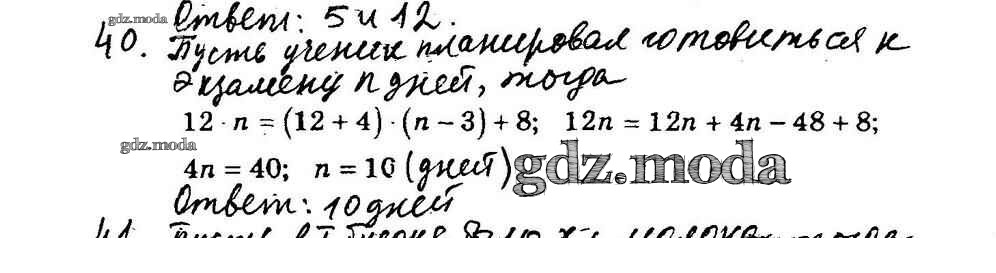 gdz.moda Ответ: 5 и 12.
40. Пусть ученик планировал готовиться к
экзамену n дней, тогда
12 · n = (12 + 4) · (n − 3) + 8; 12n = 12n + 4n − 48 + 8;
gdz.moda
4n = 40; n = 10 (дней) gdz.moda
Ответ: 10 дней
41. Пусть